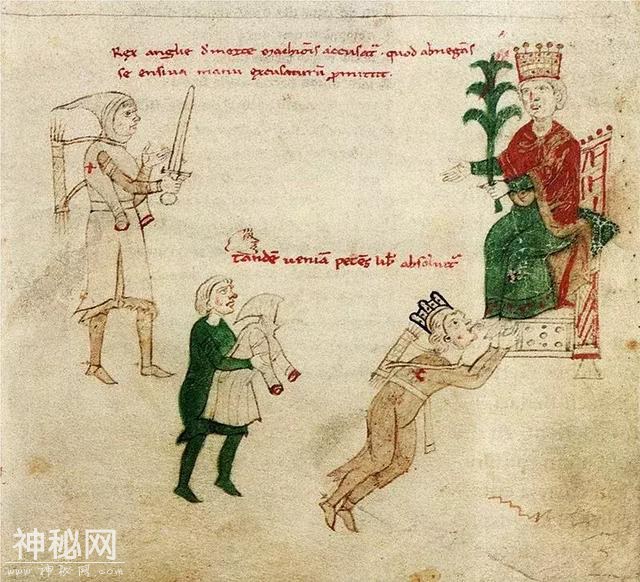 Rex anglie d morte machiōis accusat᷑. quod abnegās
se ensiua manu excusaturū pmittit.
tandē ueniā petēs lib᷑ absoluit᷑
神秘网
www.神秘网.com